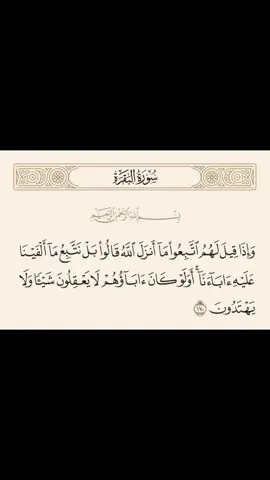 سُورَةُ الْبَقَرَةِ
بِسْمِ اللَّهِ الرَّحْمَٰنِ الرَّحِيمِ
وَإِذَا قِيلَ لَهُمُ ٱتَّبِعُواْ مَآ أَنزَلَ ٱللَّهُ قَالُواْ بَلْ نَتَّبِعُ مَآ أَلْفَيْنَا
عَلَيْهِ ءَابَآءَنَآۚ أَوَلَوْ كَانَ ءَابَآؤُهُمْ لَا يَعْقِلُونَ شَيْـًٔا وَلَا
يَهْتَدُونَ ١٧٠